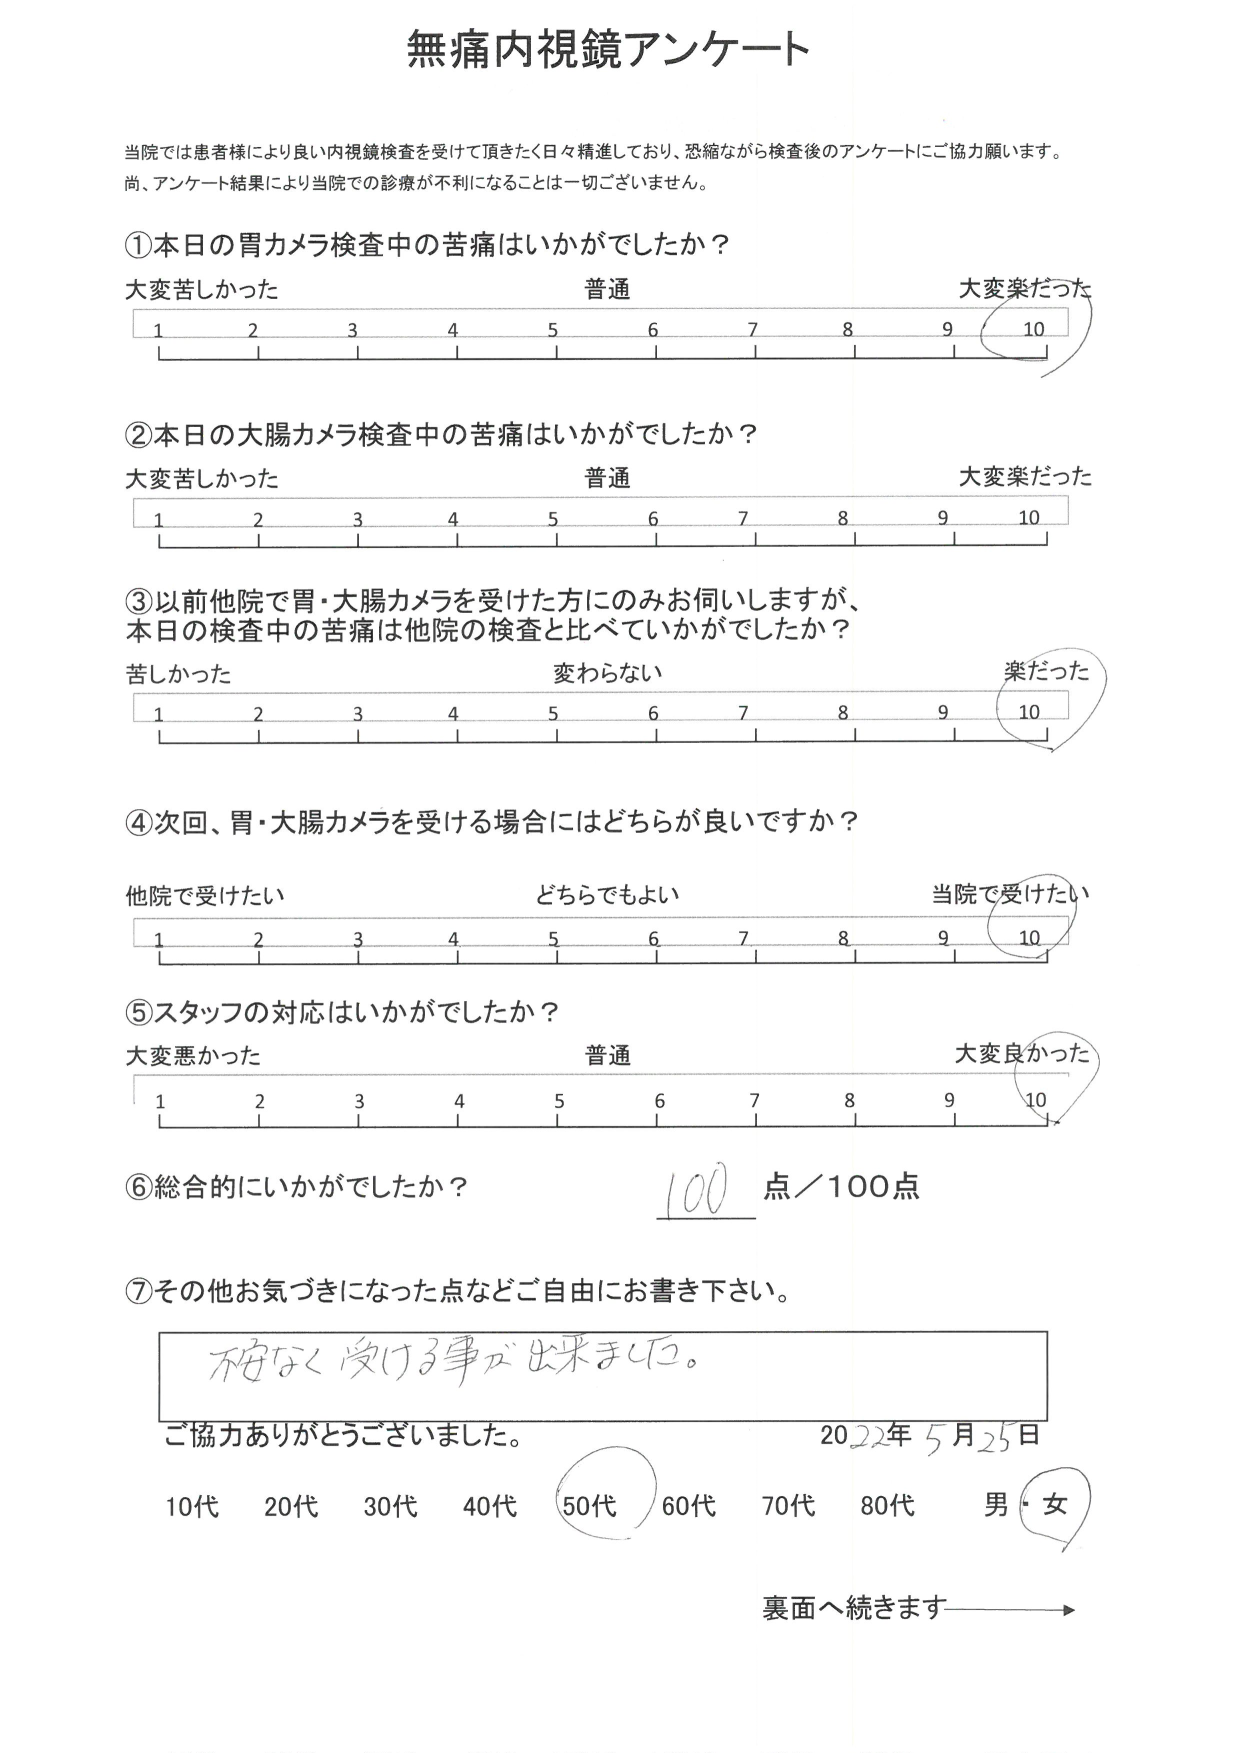 無痛内視鏡アンケート
当院では患者様により良い内視鏡検査を受けて頂きたく日々精進しており、恐縮ながら検査後のアンケートにご協力願います。
尚、アンケート結果により当院での診療が不利になることは一切ございません。
①本日の胃カメラ検査中の苦痛はいかがでしたか？
大変苦しかった 普通 大変楽だった
1 2 3 4 5 6 7 8 9 10
②本日の大腸カメラ検査中の苦痛はいかがでしたか？
大変苦しかった 普通 大変楽だった
1 2 3 4 5 6 7 8 9 10
③以前他院で胃・大腸カメラを受けた方にのみお伺いしますが、
本日の検査中の苦痛は他院の検査と比べていかがでしたか？
苦しかった 変わらない 楽だった
1 2 3 4 5 6 7 8 9 10
④次回、胃・大腸カメラを受ける場合にはどちらが良いですか？
他院で受けたい どちらでもよい 当院で受けたい
1 2 3 4 5 6 7 8 9 10
⑤スタッフの対応はいかがでしたか？
大変悪かった 普通 大変良かった
1 2 3 4 5 6 7 8 9 10
⑥総合的にいかがでしたか？ 100 点／100点
⑦その他お気づきになった点などご自由にお書き下さい。
不安なく受ける事が出来ました。
ご協力ありがとうございました。 2022年 5月25日
10代 20代 30代 40代 50代 60代 70代 80代 男・女
裏面へ続きます